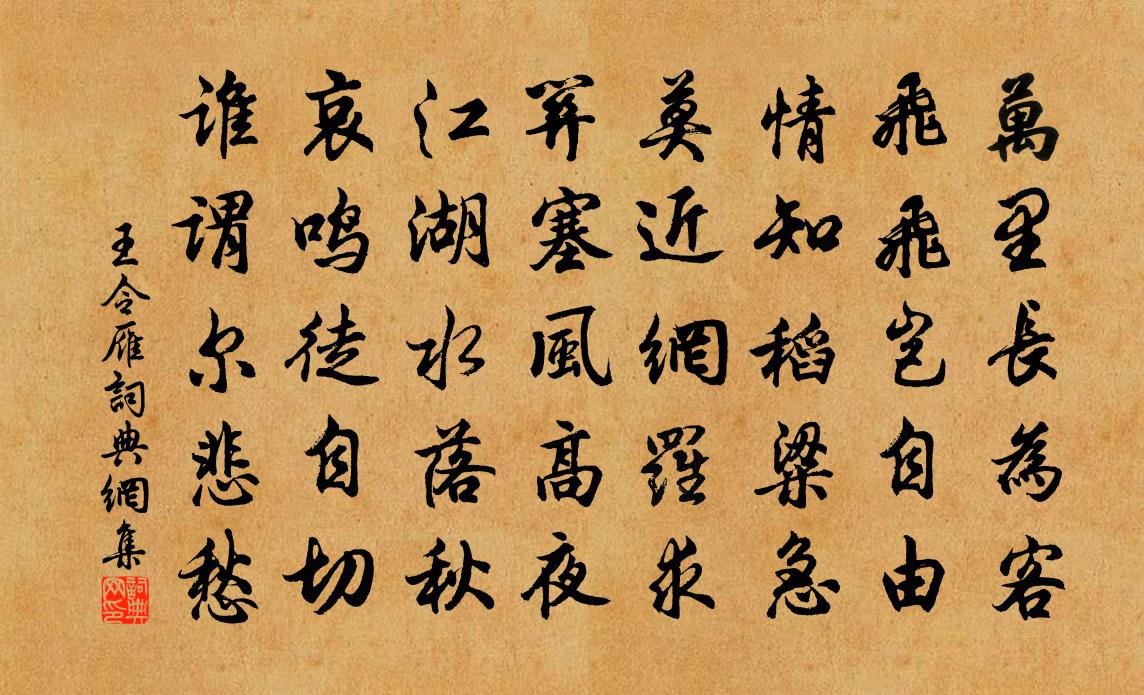 萬里長為客
飛飛豈自由
情知稻粱急
莫近網羅求
關塞風高夜
江湖水落秋
哀鳴徒自切
谁謂尔悲愁
王令雁詞典網集
詞典网印